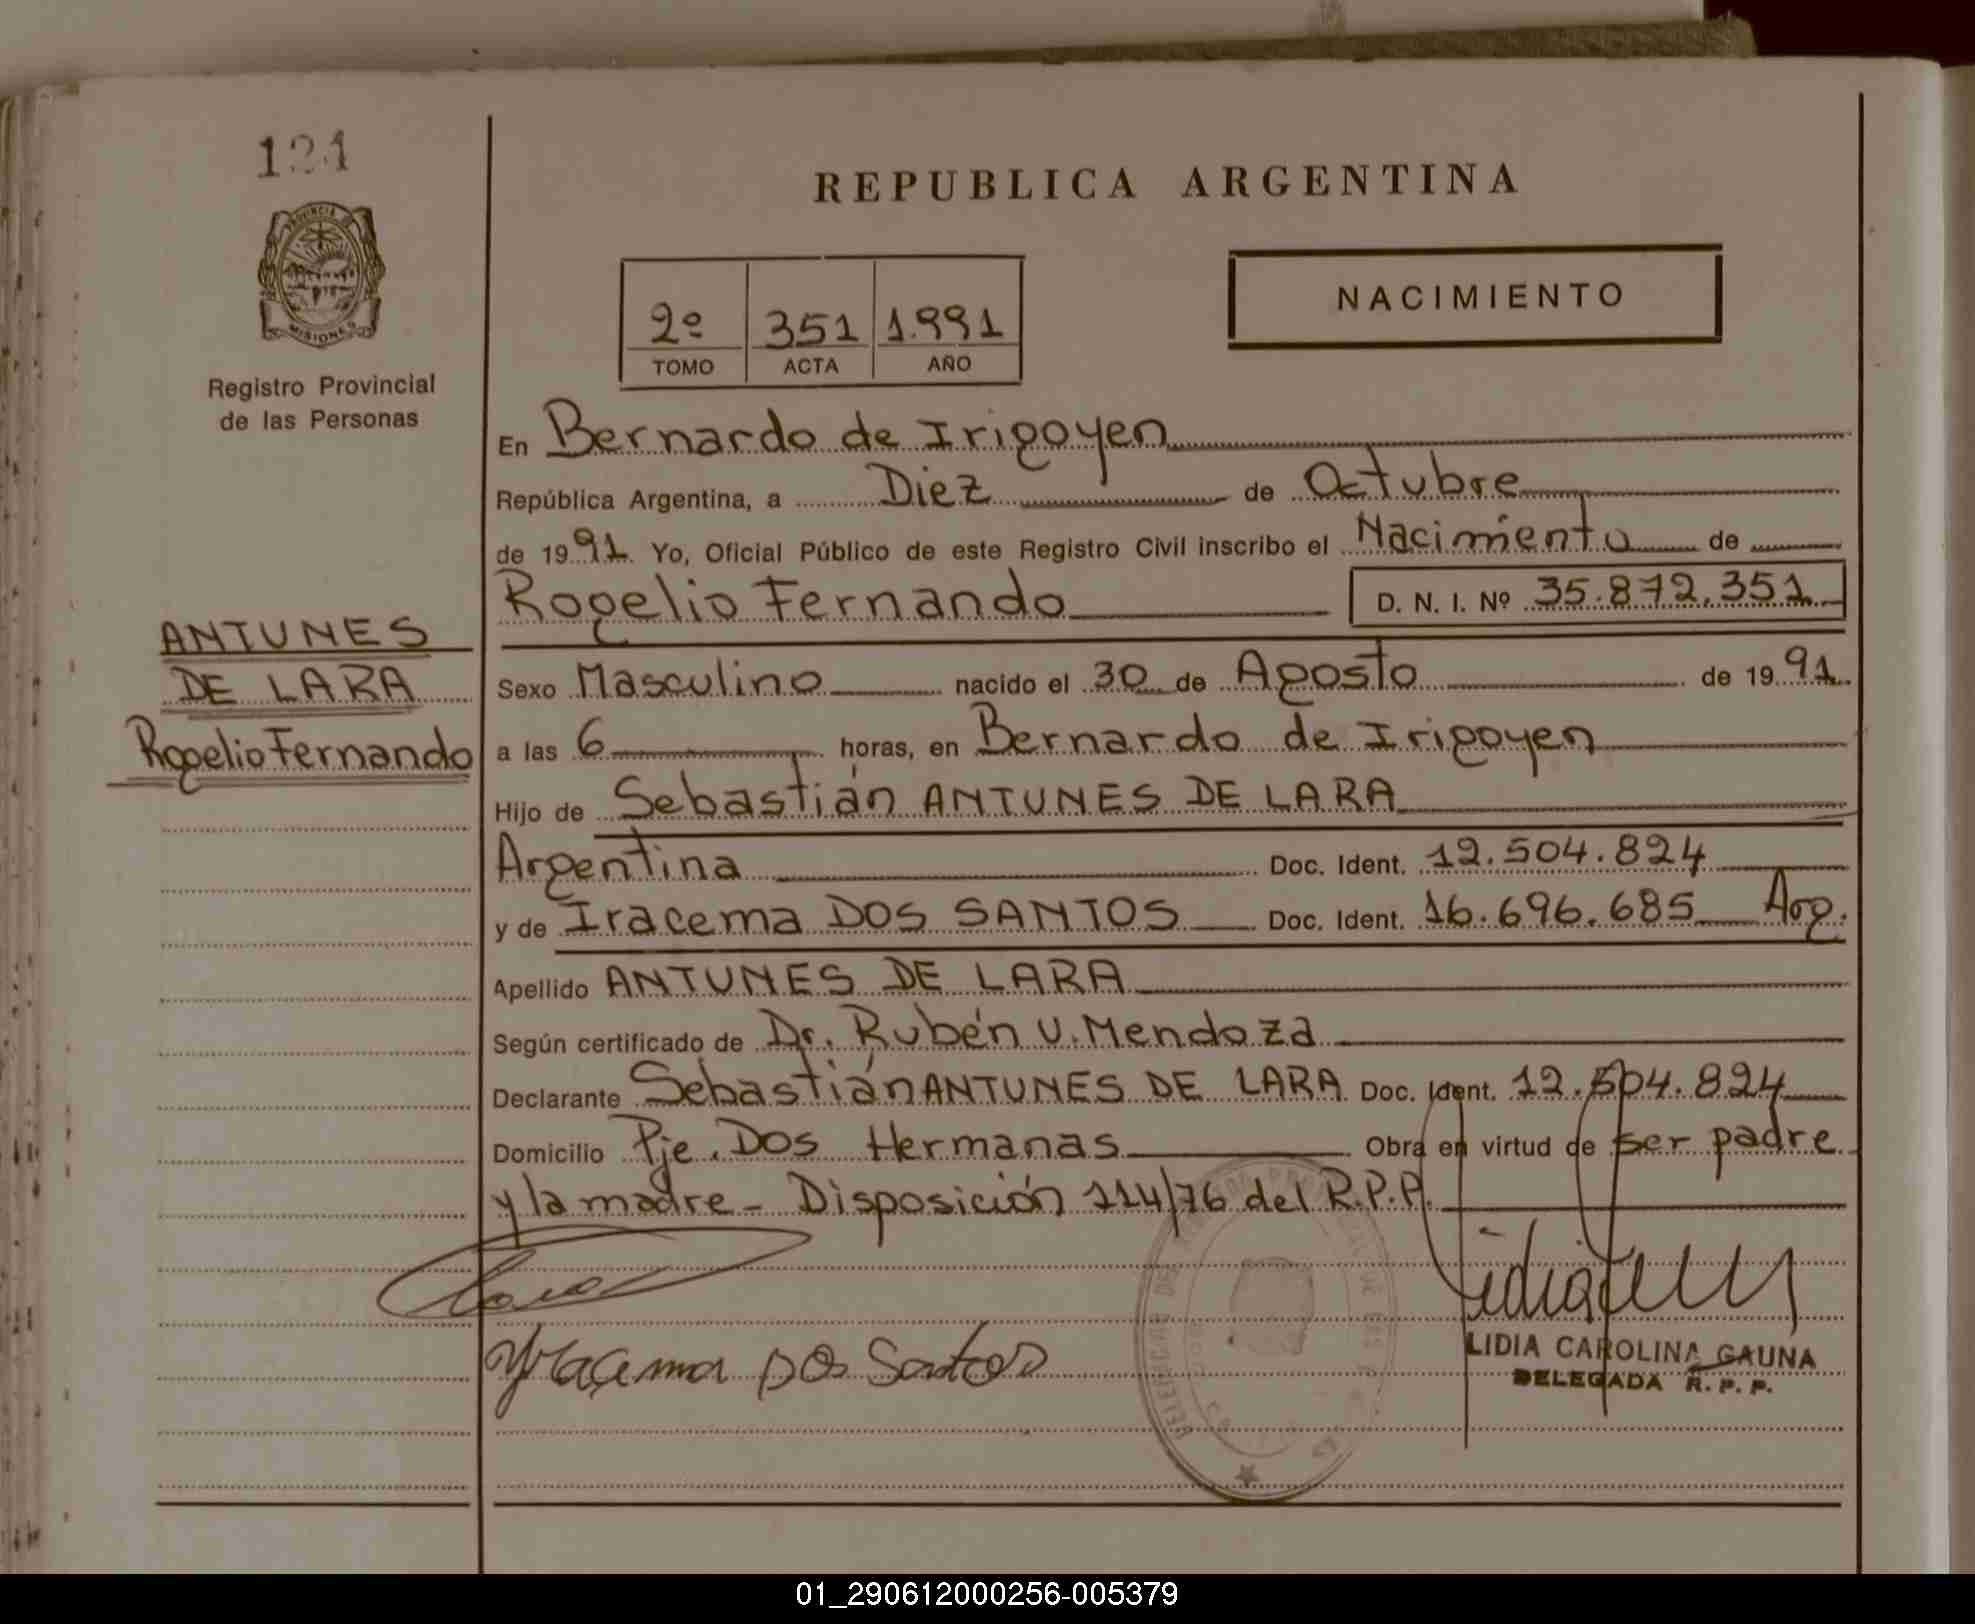 121
PROVINCIA DE
MISIONES
Registro Provincial
de las Personas
ANTUNES
DE LARA
Rogelio Fernando
REPUBLICA ARGENTINA
2º 351 1.991
TOMO ACTA AÑO
NACIMIENTO
En Bernardo de Irigoyen
República Argentina, a Diez de Octubre
de 1991 Yo, Oficial Público de este Registro Civil inscribo el Nacimiento de
Rogelio Fernando D. N. I. Nº 35.872.351
Sexo Masculino nacido el 30 de Agosto de 1991
a las 6 horas, en Bernardo de Irigoyen
Hijo de Sebastián ANTUNES DE LARA
Argentina Doc. Ident. 12.504.824
y de Iracema DOS SANTOS Doc. Ident. 16.696.685 Arg.
Apellido ANTUNES DE LARA
Según certificado de Dr. Rubén U. Mendoza
Declarante Sebastián ANTUNES DE LARA Doc. Ident. 12.504.824
Domicilio Pje. Dos Hermanas Obra en virtud de ser padre
y la madre - Disposición 114/76 del R.P.P.
Yracema DOs Santos
LIDIA CAROLINA GAUNA
DELEGADA R. P. P.
01_290612000256-005379